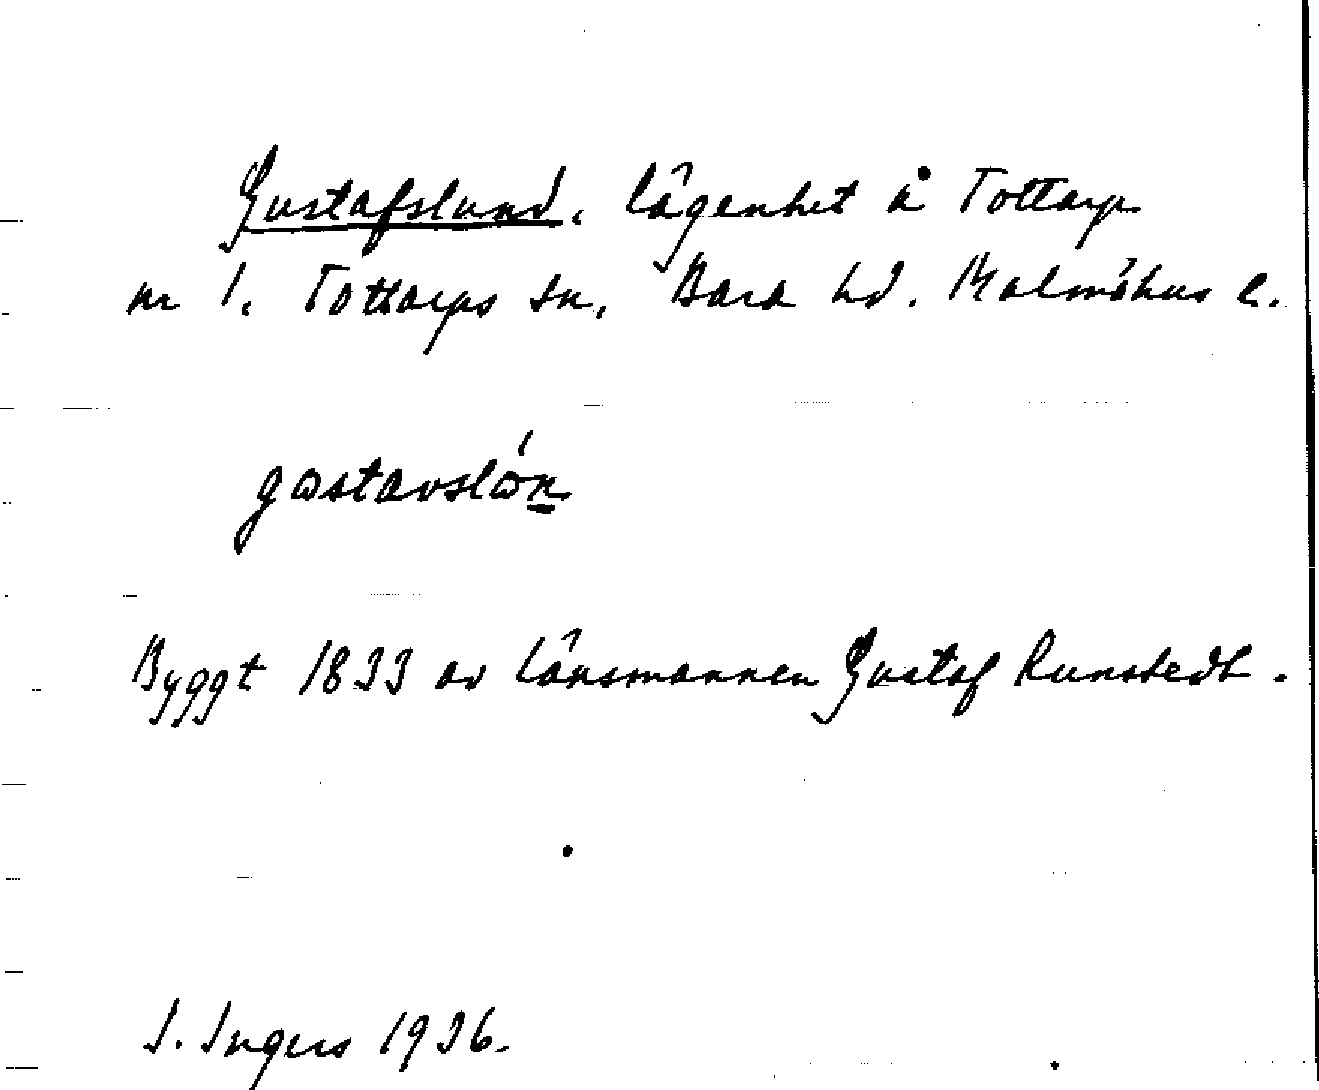 Gustafslund, lägenhet å Tottarp
nr 1. Tottarps sn, Bara hd. Malmöhus l.
gωstavslώn
Byggt 1833 av länsmannen Gustaf Runstedt.
I. Ingers 1936.